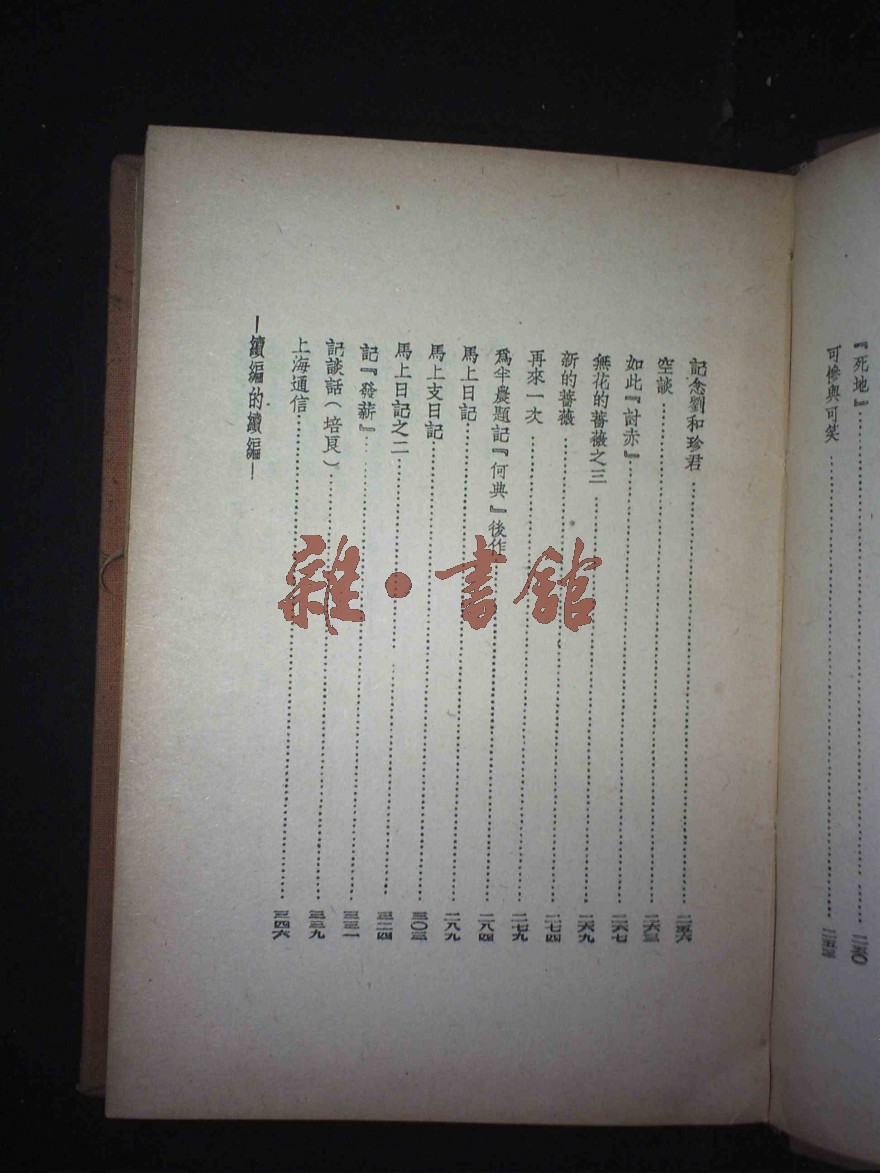 『死地』……二五〇
可慘與可笑……二五三
記念劉和珍君……二五六
空談……二六三
如此『討赤』……二六七
無花的薔薇之三……二六九
新的薔薇……二七四
再來一次……二七九
爲半農題記『何典』後作……二八四
馬上日記……二八九
馬上支日記……三〇三
馬上日記之二……三二四
記『發薪』……三三一
記談話(培良)……三三九
上海通信……三四六
—續編的續編—
雜·書館